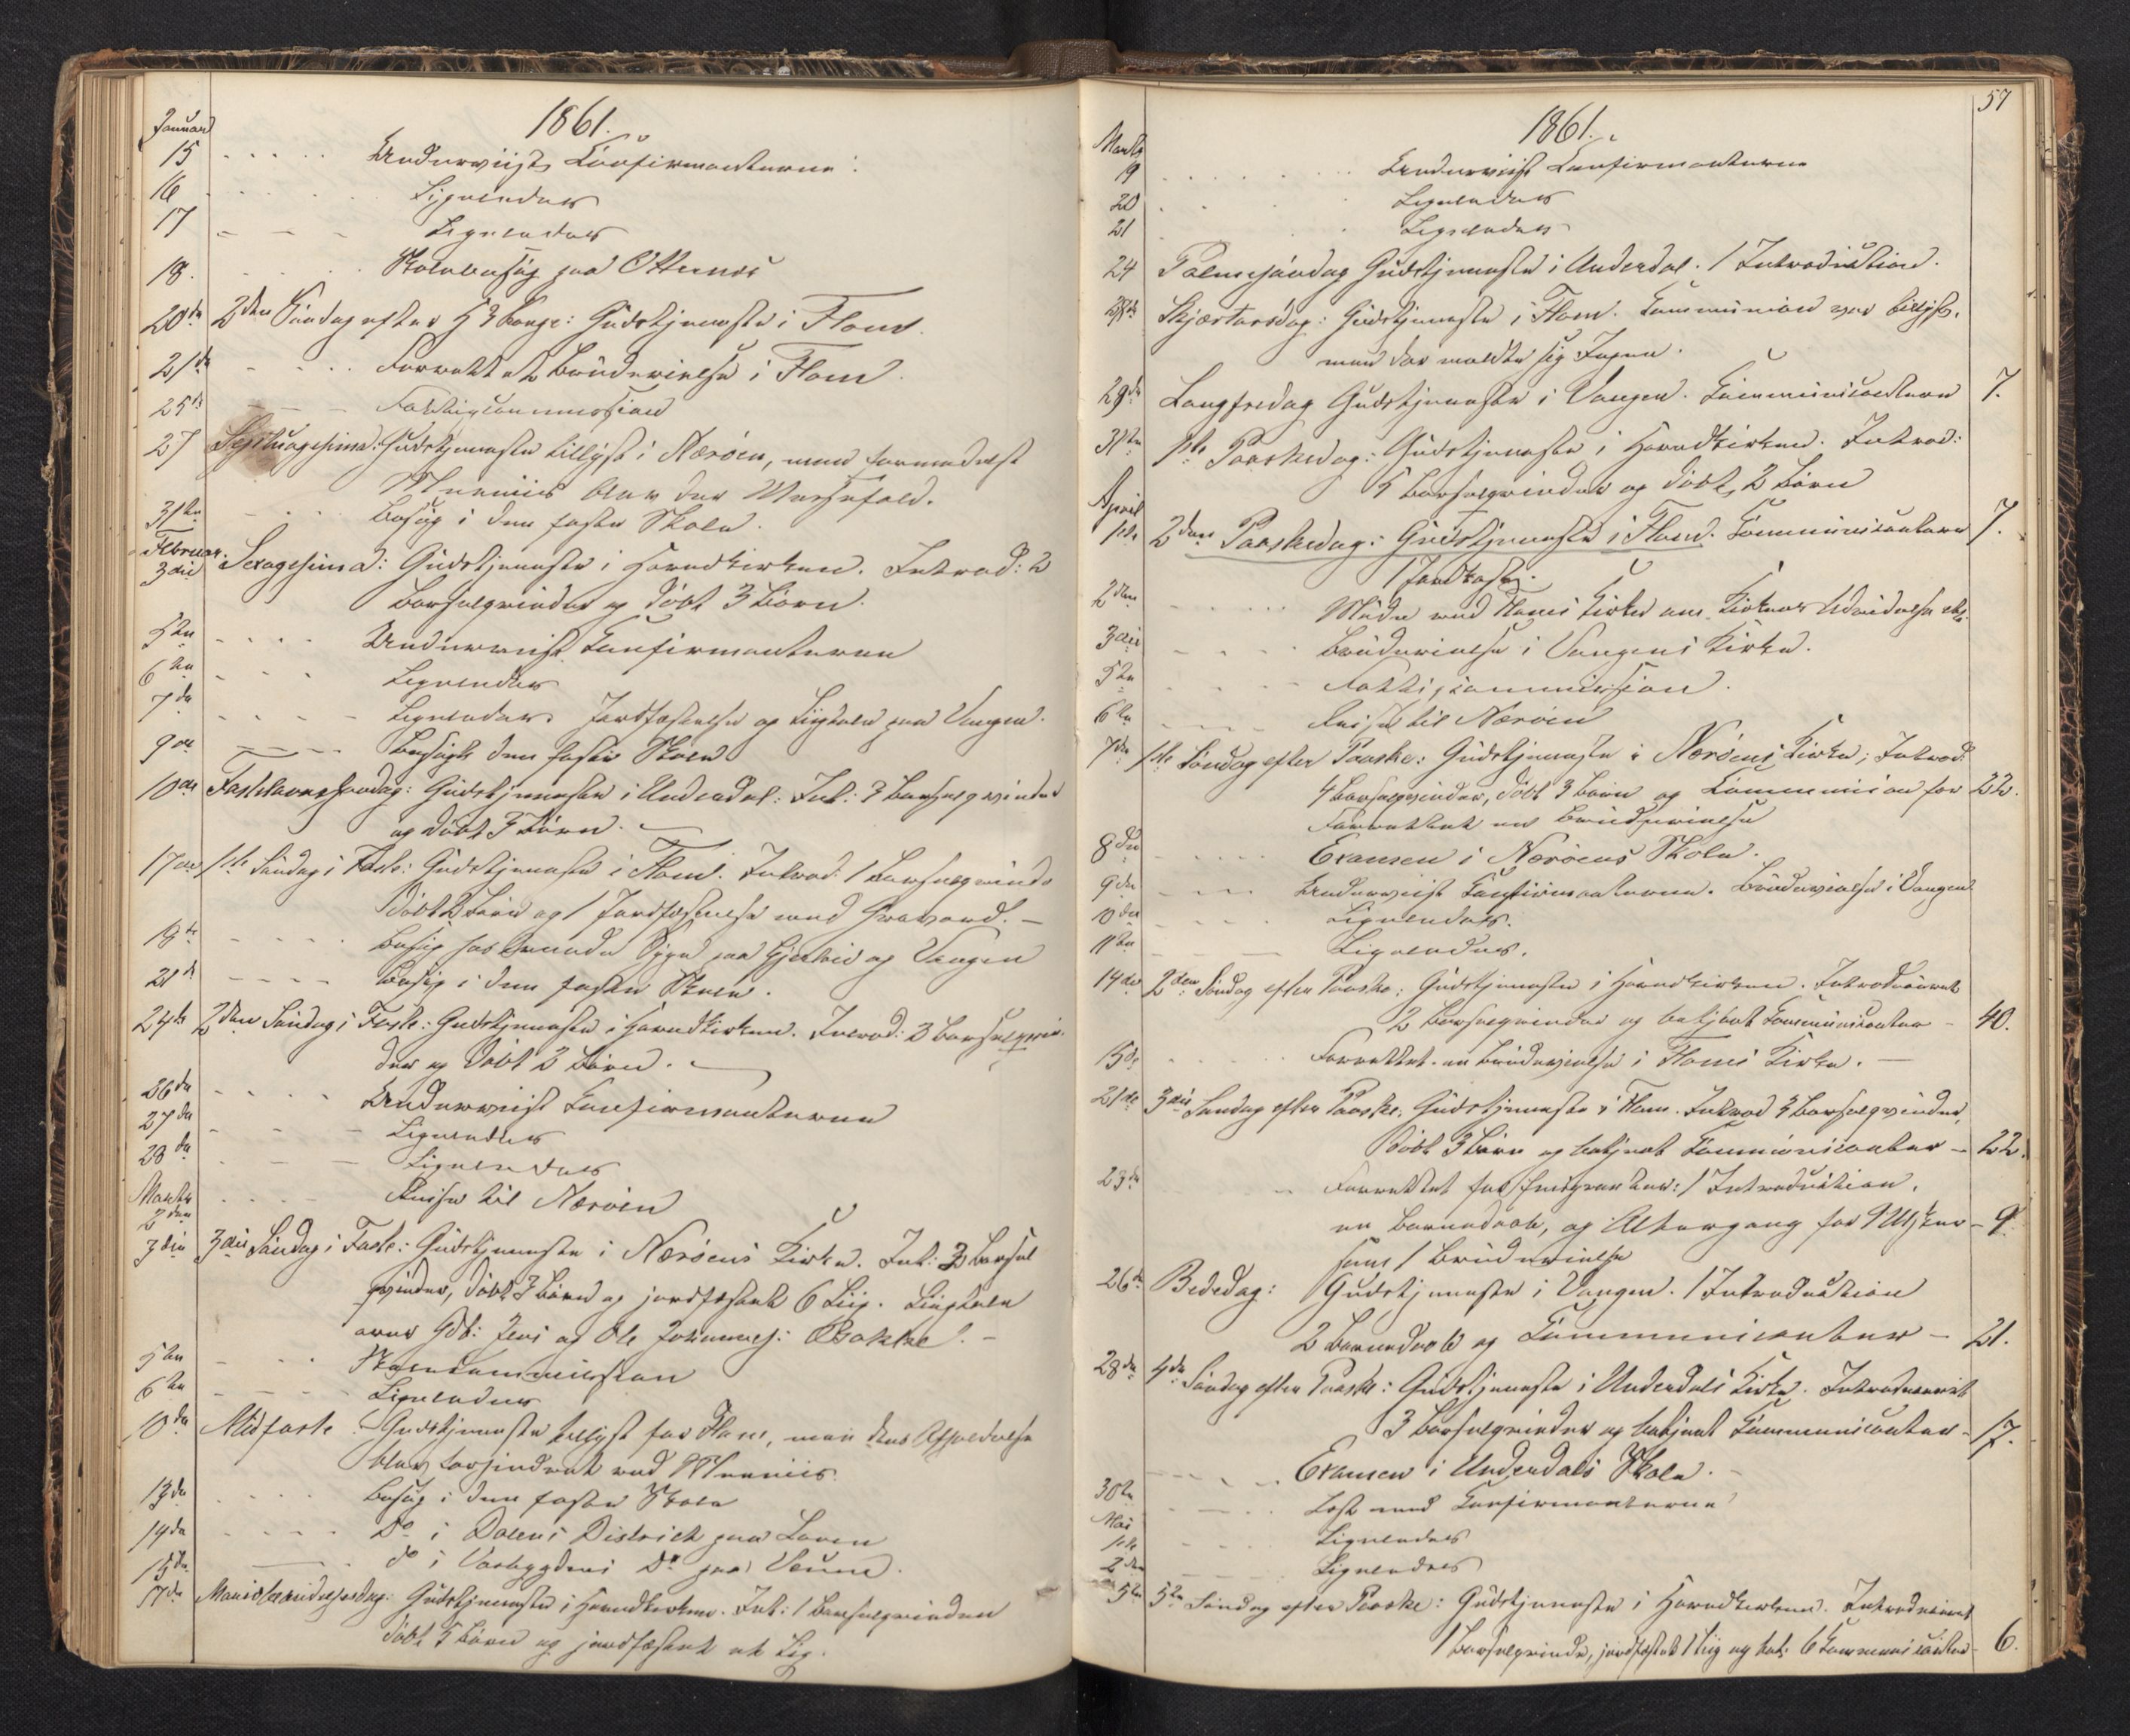 1861.
Januar
15 Underviist Confirmanterne.
16 Ligeledes
17 Ligeledes
18. Skolebesøg paa Otternes
20de 2den Søndag efter H 3 Konge: Gudstjeneste i Flom.
21de Forrettet Brudevielse i Flom.
25de Fattigcommission
27 Septuagesima: Gudstjeneste tillyst i Nærøen, men formedelst
Meenniis blev der Messefald.
31te Besøg i den faste Skole.
Februar.
3die Sexagesima: Gudstjeneste i Hovedkirken. Introd: 2
Barselqvinder og døbt 3 Børn.
5te Underviist Confirmanterne
6te Ligeledes
7de Ligeledes. Jordfæstelse og Liigtale paa Vangen.
9de Besøgt den faste Skole
10de Fastelavnssøndag: Gudstjeneste i Underdal: Int: 3 Barselqvinder
og døbt 3 Børn.
17de 1ste Søndag i Faste: Gudstjeneste i Flom. Introd. 1 Barselqvinde
døbt 2 Børn og 1 Jordfæstelse med Gravord.
19de Besøg hos Syge paa og Vangen
21de Besøg i den faste Skole.
24de 2den Søndag i Faste: Gudstjeneste i Hovedkirken. Introd: 3 Barselqvin-
der og døbt 2 Børn.
26de Underviist Confirmanterne
27de Ligeledes
28de Ligeledes
Marts
2den Reise til Nærøen
3die 3die Søndag i Faste: Gudstjeneste i Nærøens Kirke. Int: 3 Barsel
qvinder, døbt 3 Børn og jordfæstet 6 Liig. Liigtale
over Gdb: Jens og Ole Johannes: Bakke.
5te Skolecommission
6te Ligeledes
10de Midfaste Gudstjeneste tillyst for Flom, men dens Afholdelse
blev forhindret ved Meenniis.
13de Besøg i den faste Skole
14de Do i Dalens District paa
15de do i Vasbygdens Do paa
17de Mariæ Bebudelsesdag: Gudstjeneste i Hovedkirken. Int: 1 Barselqvinde
døbt 5 Børn og jordfæstet et Lig.
57
1861.
Marts
19 Underviist Confirmanterne
20 Ligeledes
21 Ligeledes
24 Palmesøndag Gudstjeneste i Underdal. 1 Introduction.
28de Skjærtorsdag: Gudstjeneste i Flom. Communion var tillyst,
men der meldte sig Ingen.
29de Langfredag Gudstjeneste i Vangen. Communicantern 7.
31te 1ste Paaskedag: Gudstjeneste i Hovedkirken. Introd:
5 Barselqvinder og døbt 2 Børn
April
1ste 2den Paaskedag: Gudstjeneste i Flom. Communicantern 7.
1 Jordfæst.
2den Møde ved Floms Kirke om Kirkens Udvidelse etc.
3die Brudevielse i Vangens Kirke.
5te Fattigcommission.
6te Reise til Nærøen
7de 1ste Søndag efter Paaske: Gudstjeneste i Nærøens Kirke; Introd.
4 Barselqvinder, døbt 3 Børn og Communion for 22.
Forrettet en Brudevielse
8de Examen i Nærøens Skole.
9de Underviist Confirmanterne. Brudevielse i Vangen
10de Ligeledes.
11te Ligeledes.
14de 2den Søndag efter Paaske: Gudstjeneste i Hovedkirken. Introduceret
2 Barselqvinder og betjent Communicanter - 40.
15de Forrettet en Brudevielse i Floms Kirke.
21de 3die Søndag efter Paaske, Gudstjeneste i Flom. Introd 3 Barselqvinder,
døbt 3 Børn og betjent Communicanter - 22.
23de Forrettet for Emigranter: 1 Introduction,
en Barnedaab, og Altergang for 9 - 9
samt 1 Brudevielse
26de Bededag: Gudstjeneste i Vangen. 1 Introduction
2 Barnedaab og Communicanter - 21.
28de 4de Søndag efter Paaske: Gudstjeneste i Underdals Kirke. Introduceret
3 Barselqvinder og betjent Communicanter - 17.
Examen i Underdals Skole.
30te Læst med Confirmanterne
Mai
1ste Ligeledes
2den Ligeledes
5te 5te Søndag efter Paaske: Gudstjeneste i Hovedkirken. Introduceret
1 Barselqvinde, jordfæstet 1 Liig og betj. 6 Communicanter - 6.